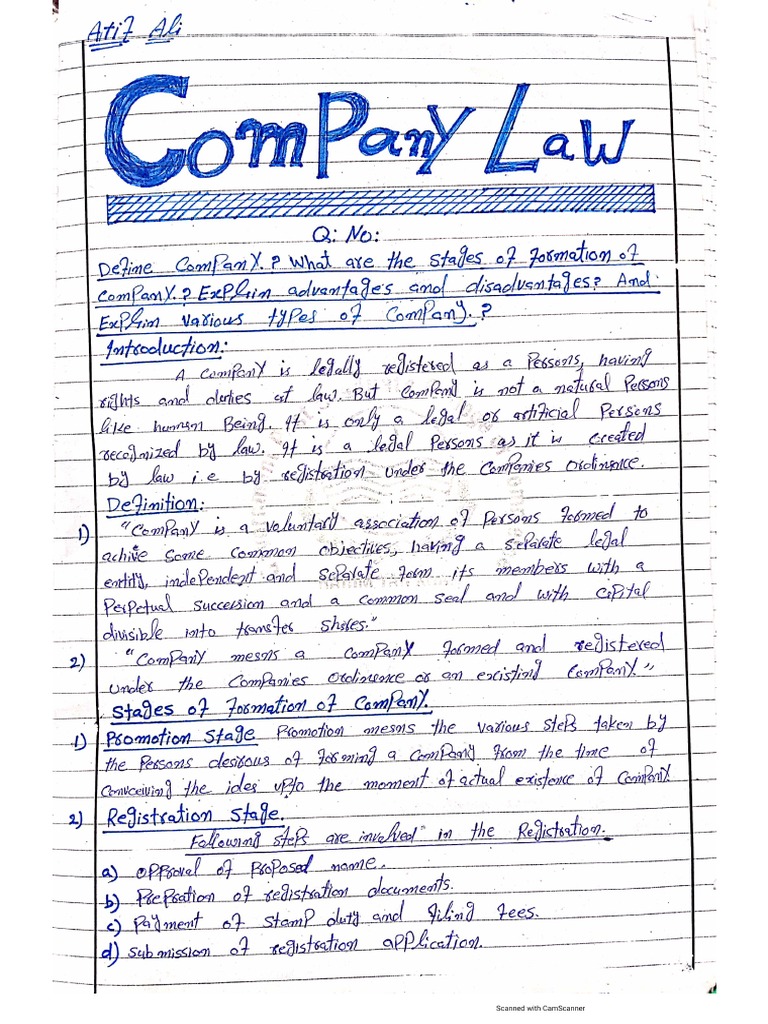 Atif Ali
Company Law
Q: No:
Define Company.? What are the stages of formation of
company.? Explin advantages and disadvantages? And
Explin various types of company.?
Introduction:
A company is legally registered as a persons, having
rights and duties at law. But company is not a natural persons
like human Being. It is only a legal or artificial persons
recognized by law. It is a legal persons as it is created
by law i.e by registration under the companies ordinence.
Definition:
1) "company is a voluntary association of persons formed to
achive some common objectives, having a separate legal
entity, independent and separate form its members with a
perpetual succession and a common seal and with cipital
divisible into transfer shores."
2) "company mesns a company formed and registered
under the companies ordinence or an existing company."
Stages of formation of company.
1) Promotion Stage Promotion mesns the various steps taken by
the persons desirous of forming a company from the time of
convceiving the ides upto the moment of actual existence of company
2) Registration Stage.
Following steps are involved in the Registration.
a) opproval of proposed name.
b) Prepration of registration documents.
c) Payment of stamp duty and filing fees.
d) submission of registration application.
Scanned with CamScanner